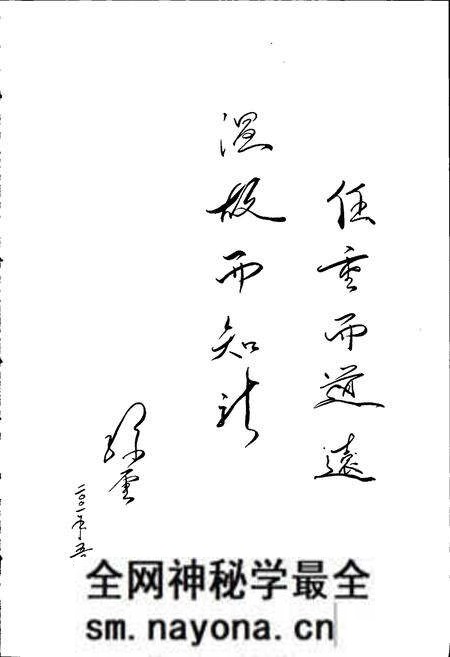 任重而道遠
温故而知新
二〇一一年五
全网神秘学最全
sm.nayona.cn